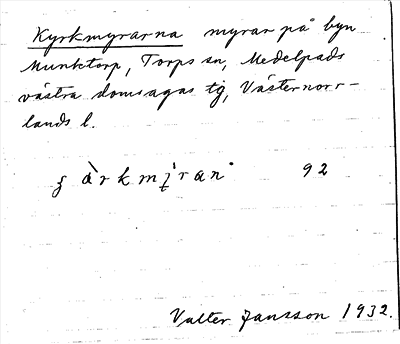 Kyrkmyrarna myrar på byn
Munktorp, Torps sn, Medelpads
västra domsagas tg, Västernorr-
lands l.
92
Valter Jansson 1932.